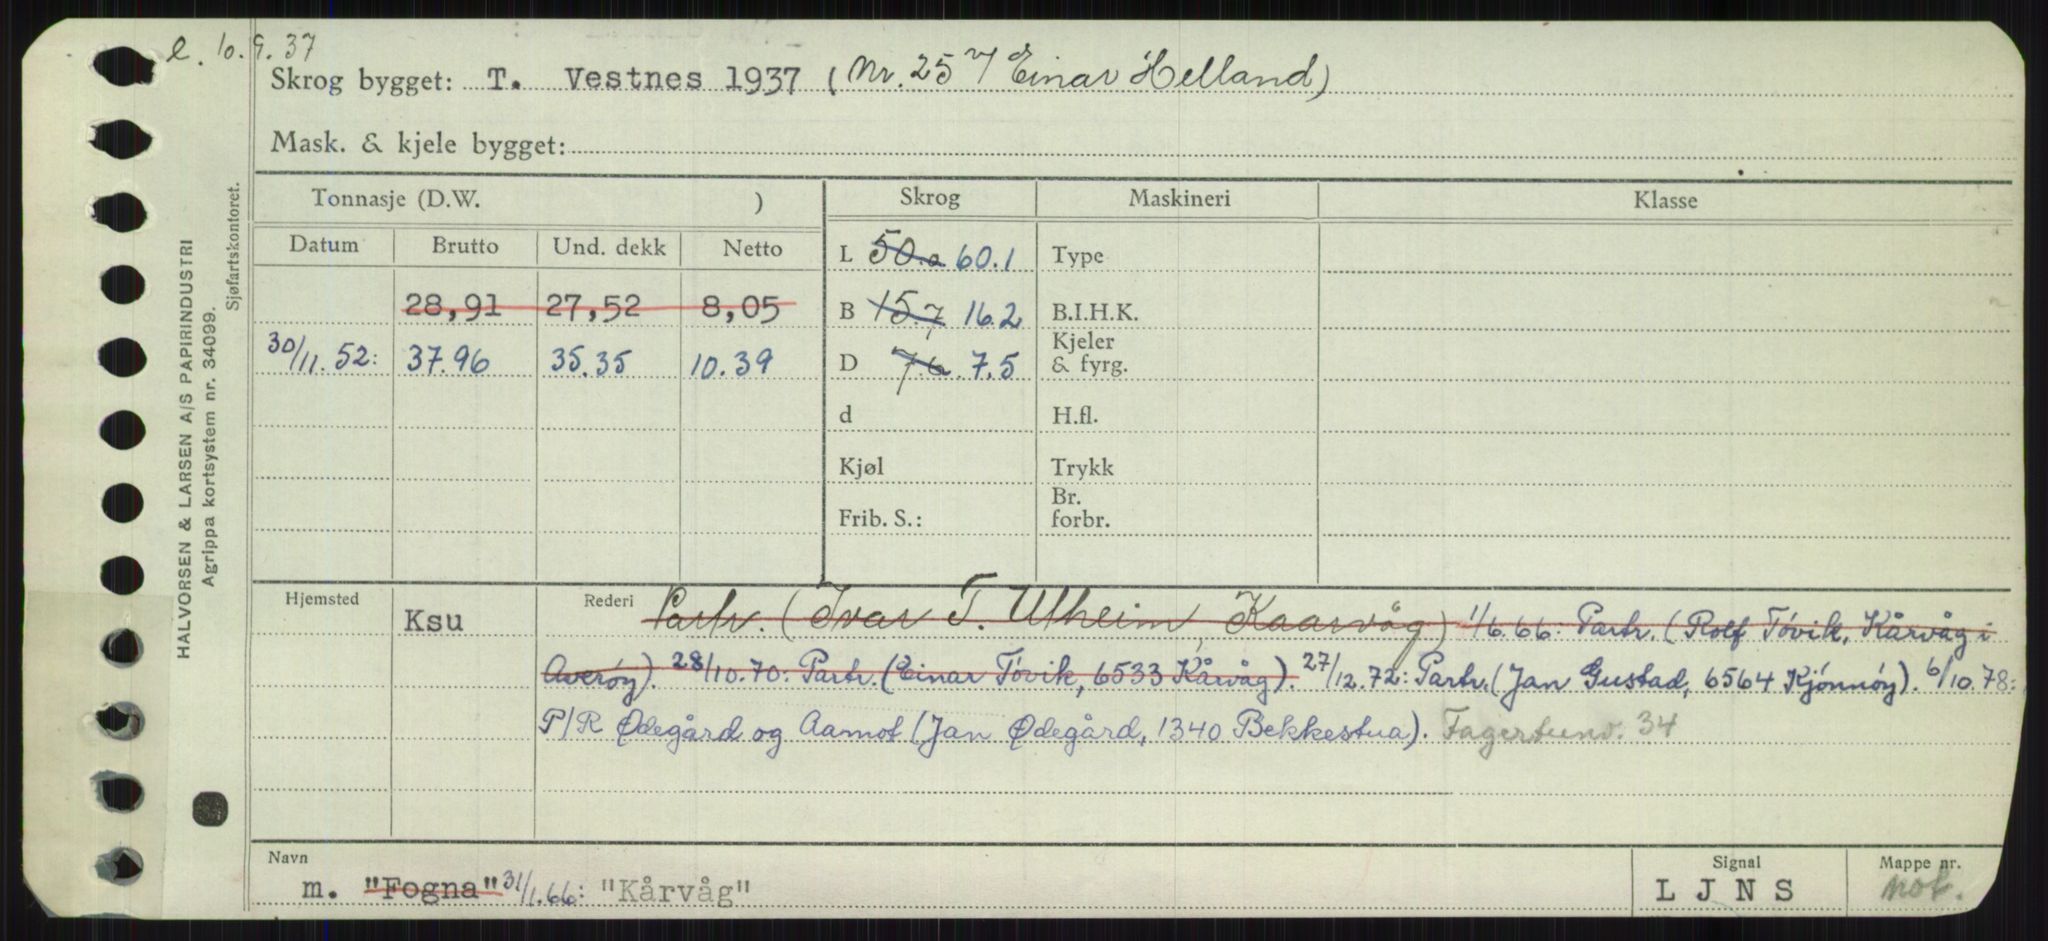 l. 10.9.37
Skrog bygget: T. Vestnes 1937 (Nr. 25 v/ Einar Helland)
Mask. & kjele bygget:
Tonnasje (D.W. ) Skrog Maskineri Klasse
Datum Brutto Und. dekk Netto L 50.0 60.1 Type
28,91 27,52 8,05 B 15.7 16.2 B.I.H.K.
30/11.52: 37.96 35.35 10.39 D 7.6 7.5 Kjeler & fyrg.
d H.fl.
Kjøl Trykk
Frib. S.: Br. forbr.
Hjemsted Ksu Rederi Partr. (Ivar T. Ulheim, Kaarvåg) 1/6.66: Partr. (Rolf Tövik, Kårvåg i
Averöy). 28/10.70: Partr. (Einar Tövik, 6533 Kårvåg). 27/12.72: Partr. (Jan Gustad, 6564 Kjönnöy). 6/10.78:
P/R Ødegård og Aamot (Jan Ødegård, 1340 Bekkestua). Fagertunv. 34
Navn Signal Mappe nr.
m. "Fogna" 31/1.66: "Kårvåg" L J N S mot.
HALVORSEN & LARSEN A/S PAPIRINDUSTRI
Agrippa kortsystem nr. 34099.
Sjøfartskontoret.